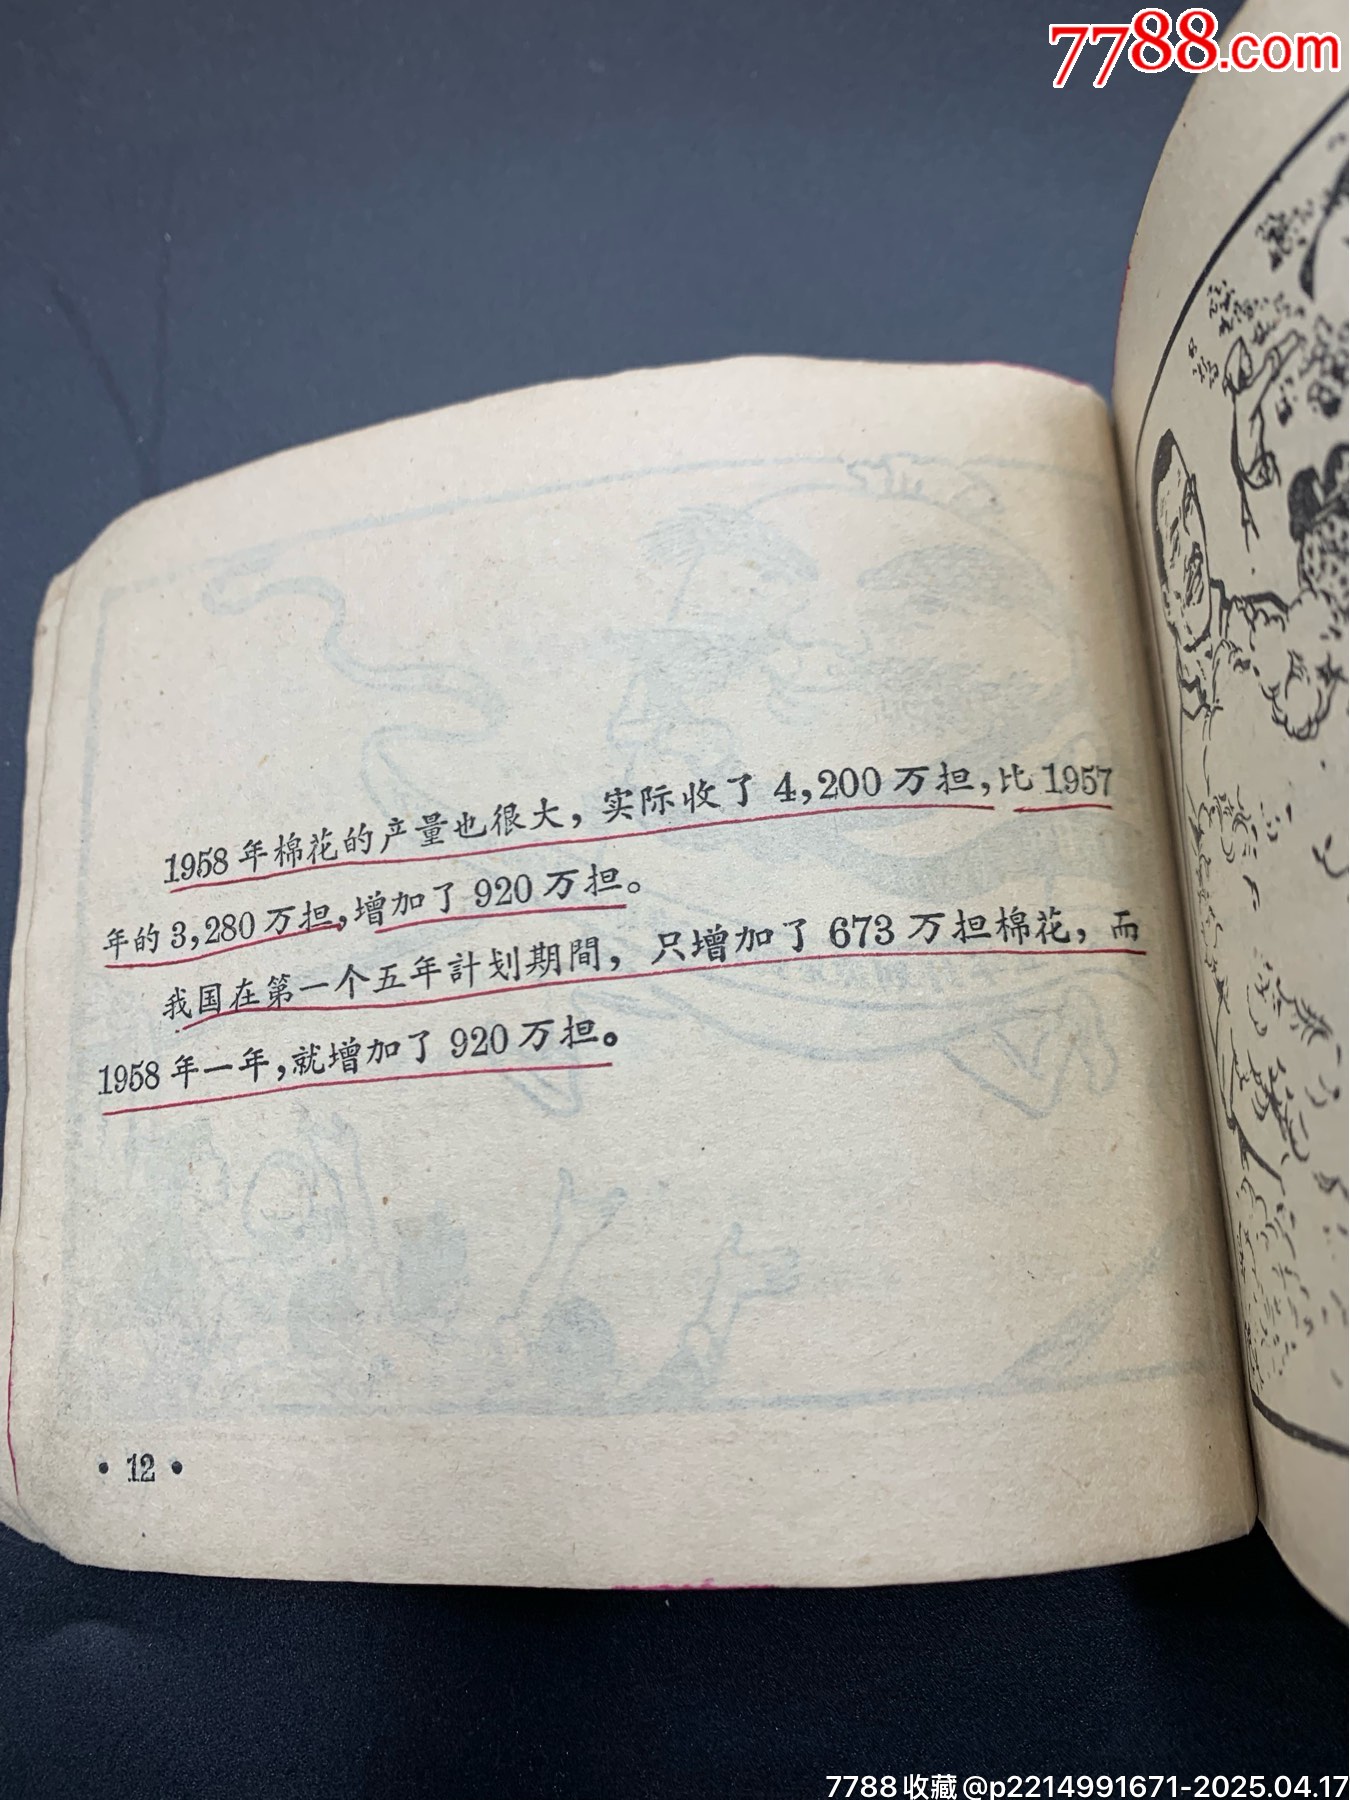 7788.com
1958年棉花的产量也很大，实际收了4,200万担，比1957
年的3,280万担，增加了920万担。
我国在第一个五年計划期間，只增加了673万担棉花，而
1958年一年，就增加了920万担。
·12·
7788收藏@p2214991671-2025.04.17